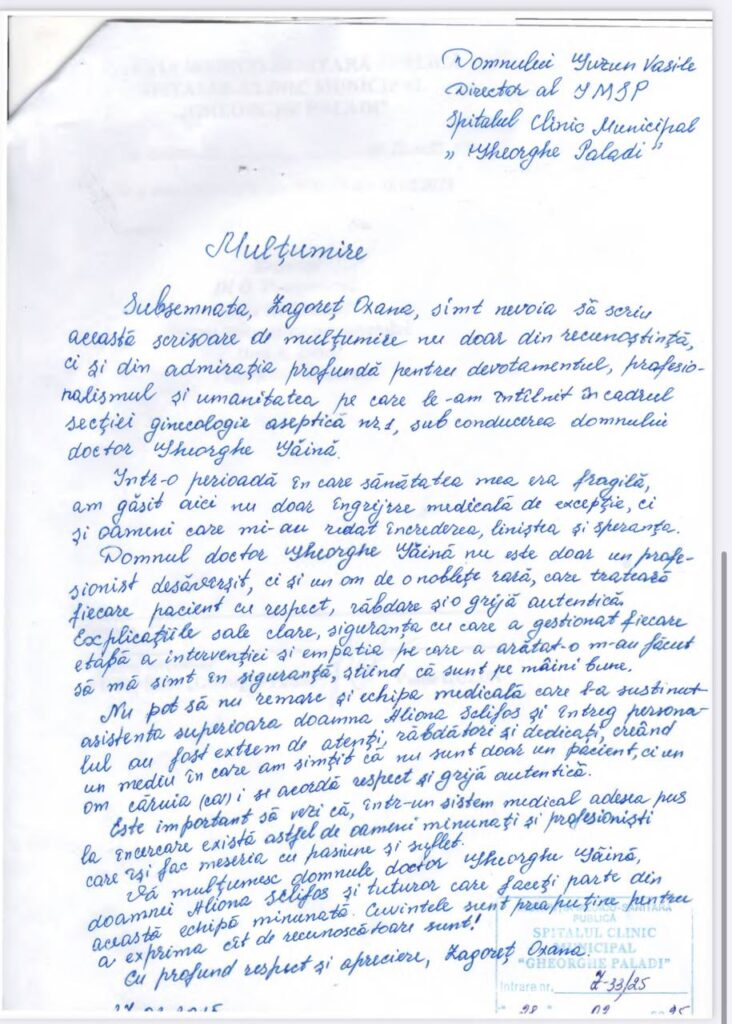 Domnului Guzun Vasile
Director al IMSP
Spitalul Clinic Municipal
„Gheorghe Paladi”
Mulţumire
Subsemnata, Zagoreţ Oxana, simt nevoia să scriu
această scrisoare de mulţumire nu doar din recunoştinţă,
ci şi din admiraţia profundă pentru devotamentul, profesio-
nalismul şi umanitatea pe care le-am întîlnit în cadrul
secţiei ginecologie aseptică nr.1, sub conducerea domnului
doctor Gheorghe Găină.
Într-o perioadă în care sănătatea mea era fragilă,
am găsit aici nu doar îngrijire medicală de excepţie, ci
şi oameni care mi-au redat încrederea, liniştea şi speranţa.
Domnul doctor Gheorghe Găină nu este doar un profe-
sionist desăvîrşit, ci şi un om de o nobleţe rară, care tratează
fiecare pacient cu respect, răbdare şi o grijă autentică.
Explicaţiile sale clare, siguranţa cu care a gestionat fiecare
etapă a intervenţiei şi empatia pe care a arătat-o m-au făcut
să mă simt în siguranţă, ştiind că sunt pe mâini bune.
Nu pot să nu remarc şi echipa medicală care l-a susţinut
asistenta superioara doamna Aliona Sclifos şi întreg persona-
lul au fost extrem de atenţi, răbdători şi dedicaţi, creând
un mediu în care am simţit că nu sunt doar un pacient, ci un
om căruia (ca) i se acordă respect şi grijă autentică.
Este important să vezi că, într-un sistem medical adesea pus
la încercare există astfel de oameni minunaţi şi profesionişti
care îşi fac meseria cu pasiune şi suflet.
Vă mulţumesc domnule doctor Gheorghe Găină,
doamnei Aliona Sclifos şi tuturor care faceţi parte din
această echipă minunată. Cuvintele sunt prea puţine pentru
a exprima cât de recunoscătoare sunt!
Cu profund respect şi apreciere, Zagoreţ Oxana.
PUBLICĂ
SPITALUL CLINIC
MUNICIPAL
"GHEORGHE PALADI"
Intrare nr. Z-33/25